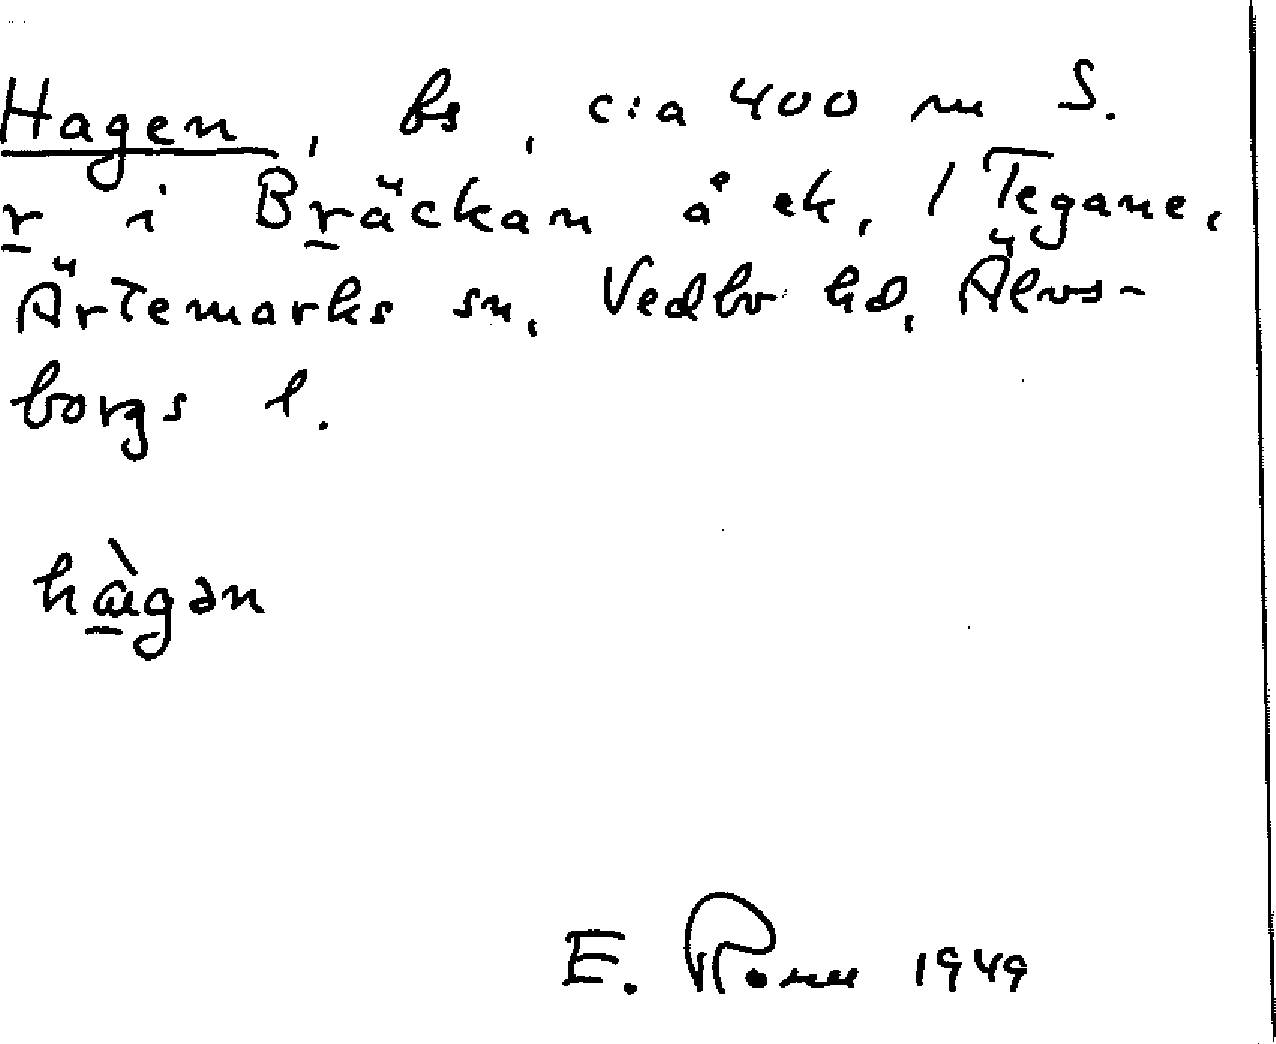 Hagen, bs, c:a 400 m S.
r i Bräckan å ek. 1 Tegane,
Ärtemarks sn, Vedbo hd, Älvs-
borgs l.
hàgən
E. 1949